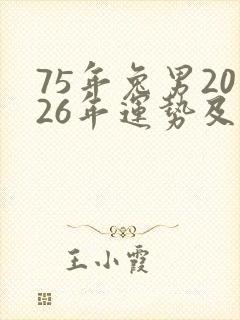 75年兔男20
26年運勢及
王小霞